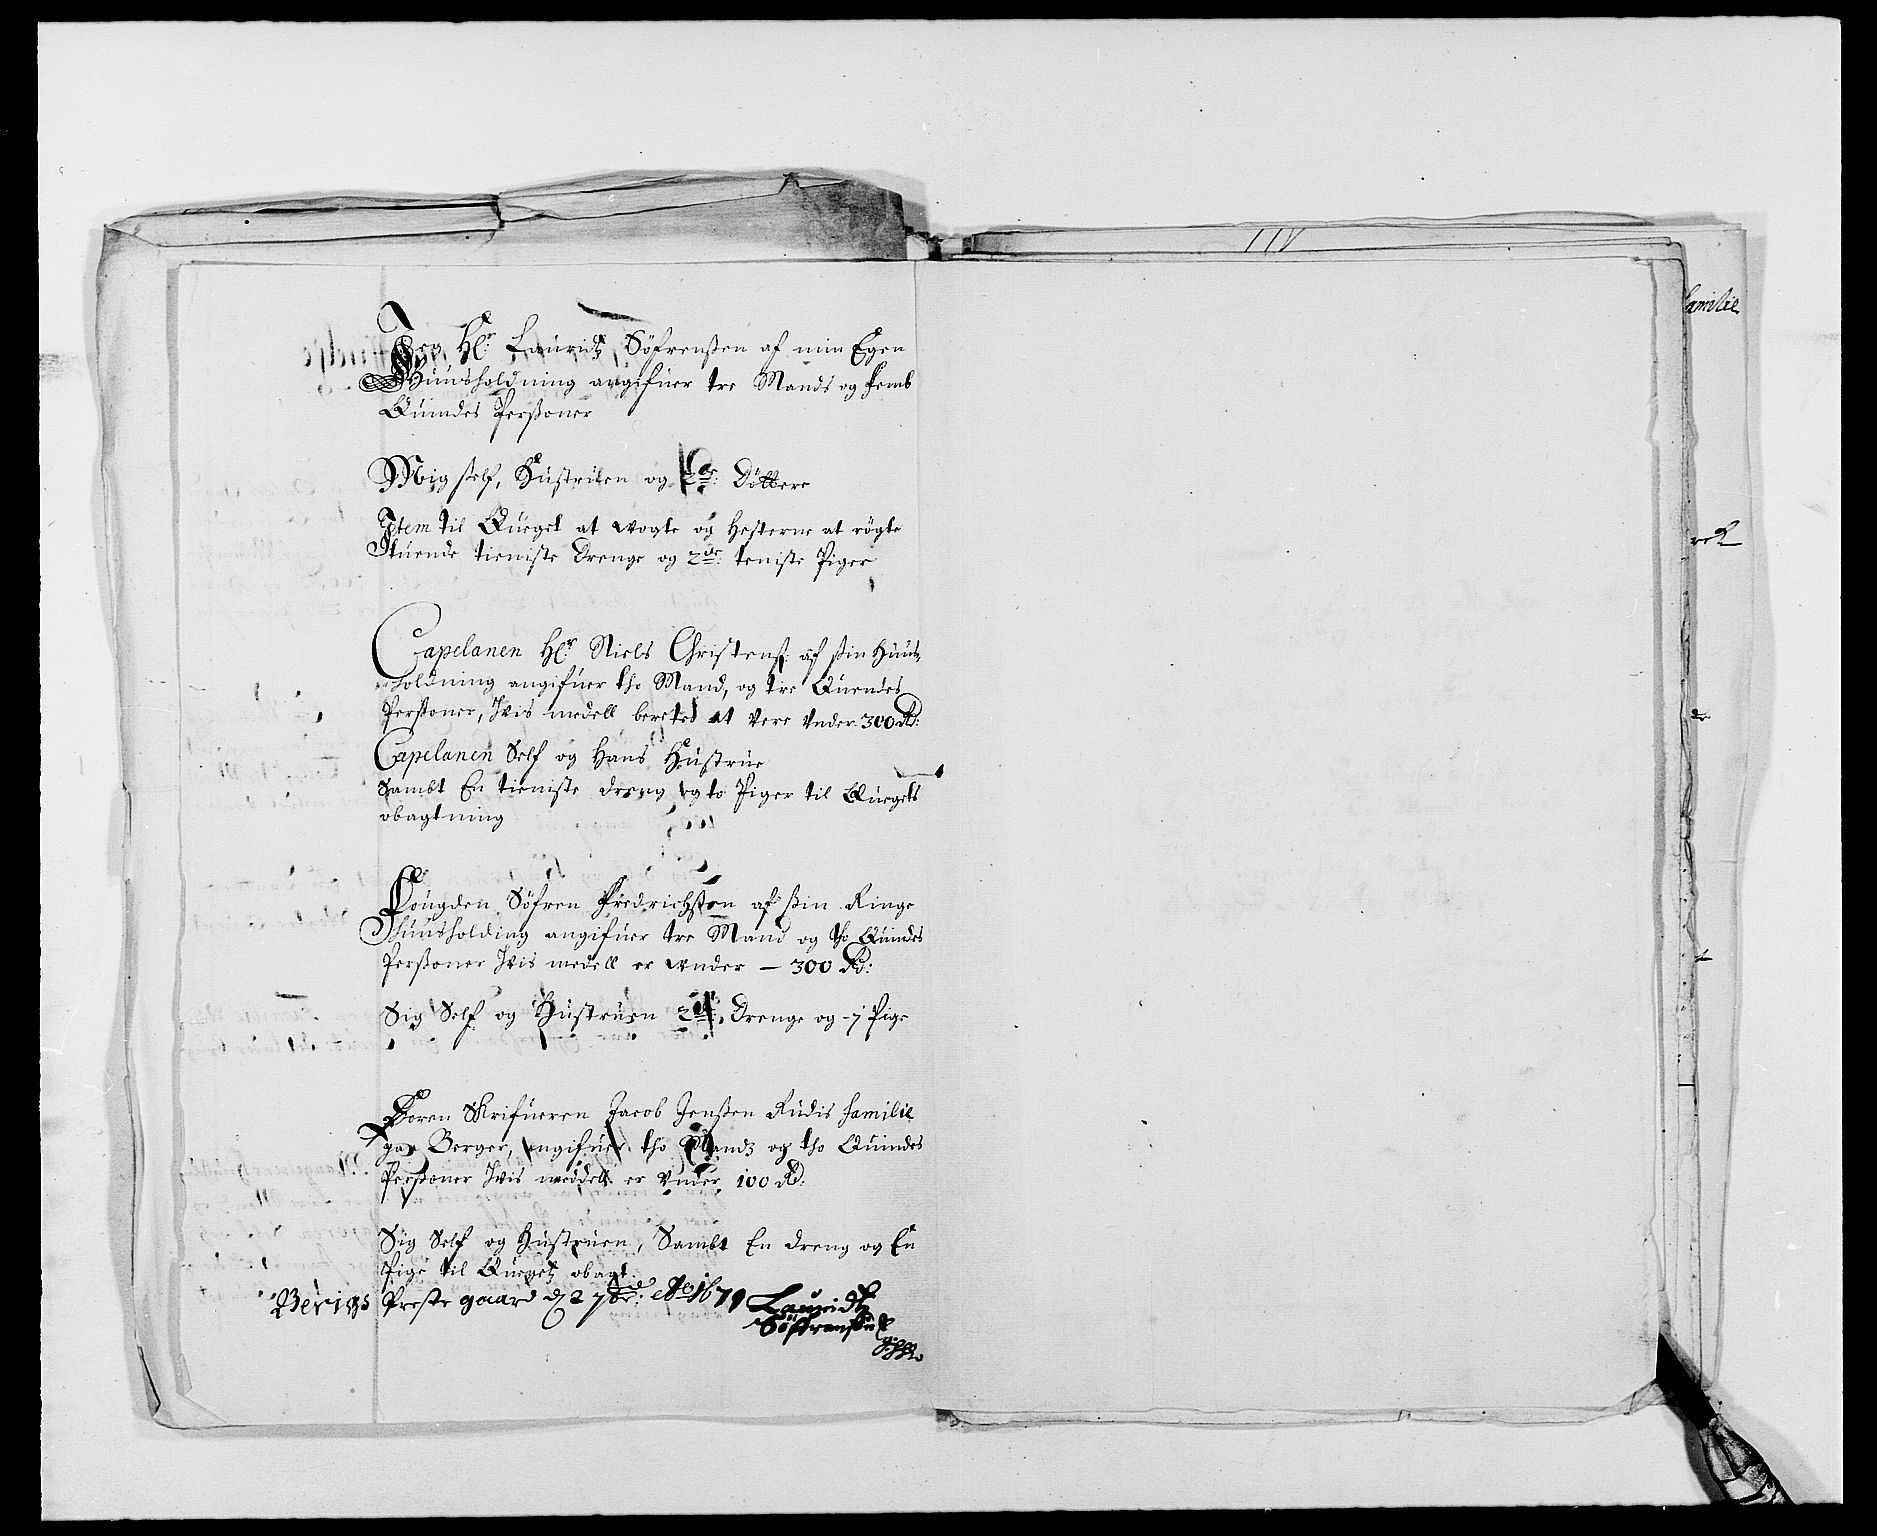 Jeg Hr Lauridtz Söfrenßen af min Egen
Huusholdning angifuer tre Mands og femb
Quindes Perßoner
Mig self, Hustruen og 2de: Döttere
Jtem til Queget at wogte og Hesterne at rögte
Thuende tieniste drenge og 2de: teniste Piger
Capelanen Hr Niels Christenß: af ßin Huus-
holdning angifuer tho Mand, og tre Quendes
Perßoner, Hvis medell beretes at vere vnder 300 Rd:
Capelanen Self og Hans Hustrue
Sambt En tieniste dreng og to Piger til Quegets
obagtning
Fougden Söfren Fredrichßen af ßin Ringe
Huusholding angifuer tre Mand og tho Quindes
Perßoner Hvis medell er wnder — 300 Rd:
Sig Self og Hustruen 2de: Drenge og -1 Pige
Soren Skrifueren Jacob Jenßen Rudis familie
paa Berger, angifuer tho Mandz og tho Quindes
Perßoner Hvis meddell er vnder 100 Rd:
Sig Self og Hustruen, Sambt En dreng og En
Pige til Quegetz obagt:
Bergs Preste gaard d 2 7br: Ao 1679 Lauridtz
Söffrenßen
familie